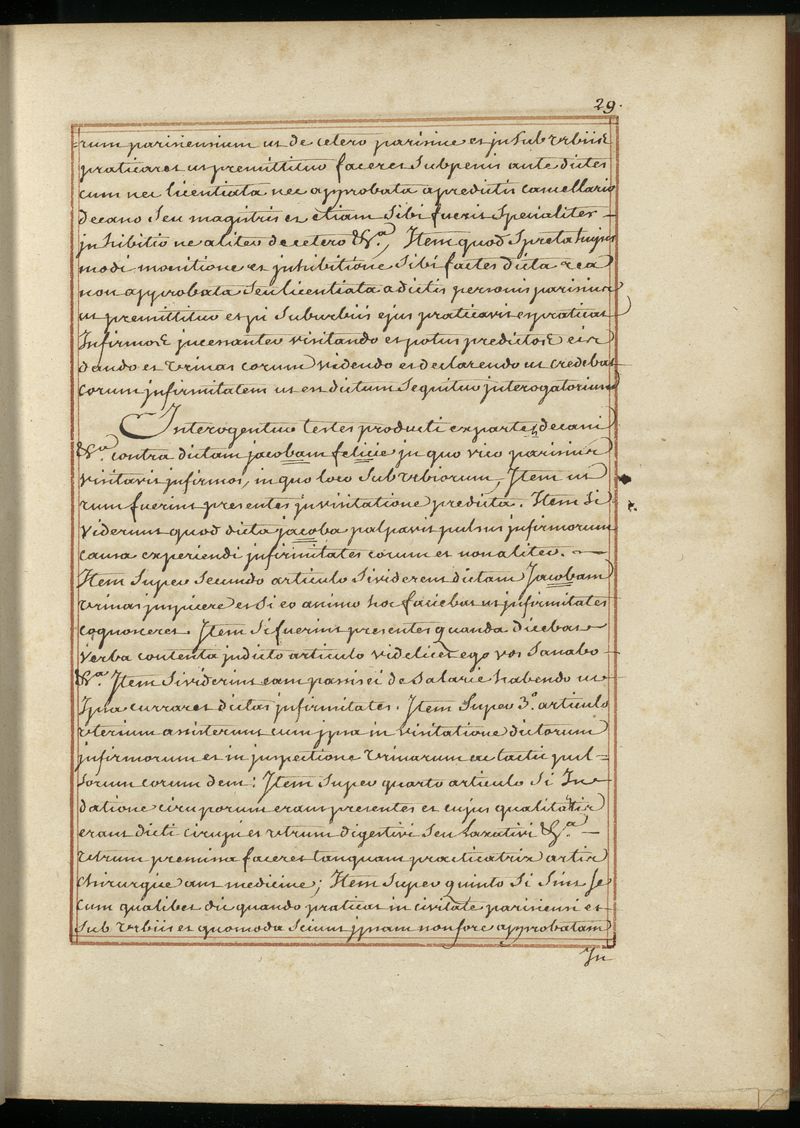 29.
=rum parisiensium ut de cetero parisius et in suburbiis
praticaret ut premittitur faceret subpenis ante dictes
cum nec licentiata nec approbata apredictis cancellario
decano seu magistris et etiam sibi fuerit specialiter
inhibitio ne aliter de cetero &.a, Item quod spreta hujus
modi monitione et inhibitione sibi factes dicta rea
non approbata seu licentiata a dictis personis parisius
ut premittitur et pi suburbiis ejus praticavit et praticat
Infirmos jucesanter visitando et potus predictos eis
dando et vrinas eorum videndo et declarendo ut credebat
eorum infirmitatem ut est dictum sequitur interogatorium
Interogentur testes producti exparte decani
&.a contra dictam jacobam felicie in quo vico parisius
visitavit infirmos, in quo loco suburbiorum, Item ut
rum fuerint presentes in visitatione predicta. Item si
viderunt quod dicta jacoba palpavit pulsus infirmorum
causa experiendi infirmitates eorum et non aliter. —
Item super secundo articulo si viderent dictam Jacobam
vrinas inspicere et si eo animo hoc faciebat ut infirmitates
cognosceret. Item si fuerint presentes quanda dicebat
verba contenta in dicto articulo videlicet ego vos sanabo
&.a Item si viderint eam pansisci de salarie habendo ut
Ipsa curraret dictas infirmitates. Item super 3.o articulo
vterium assisterunt cum ipsa in visitatione dictorum
infirmorum et in inspectione vrinarum ac tactu pul=
sorum eorum dem: Item super quarto articulo si In
datione ciruporum erant presentes et cujus qualitatis
erant dicti cirupi et vtrum digestivi seu laxativi &.a —
vtrum premissa faceret tanquam practicatrix artis
chirurgie aut medicine; Item super quinto si sint se
cum qualibet die quando praticat in civitate parisiensi et
suburbiis et quomoda sciunt ipsam non fore approbatam
In